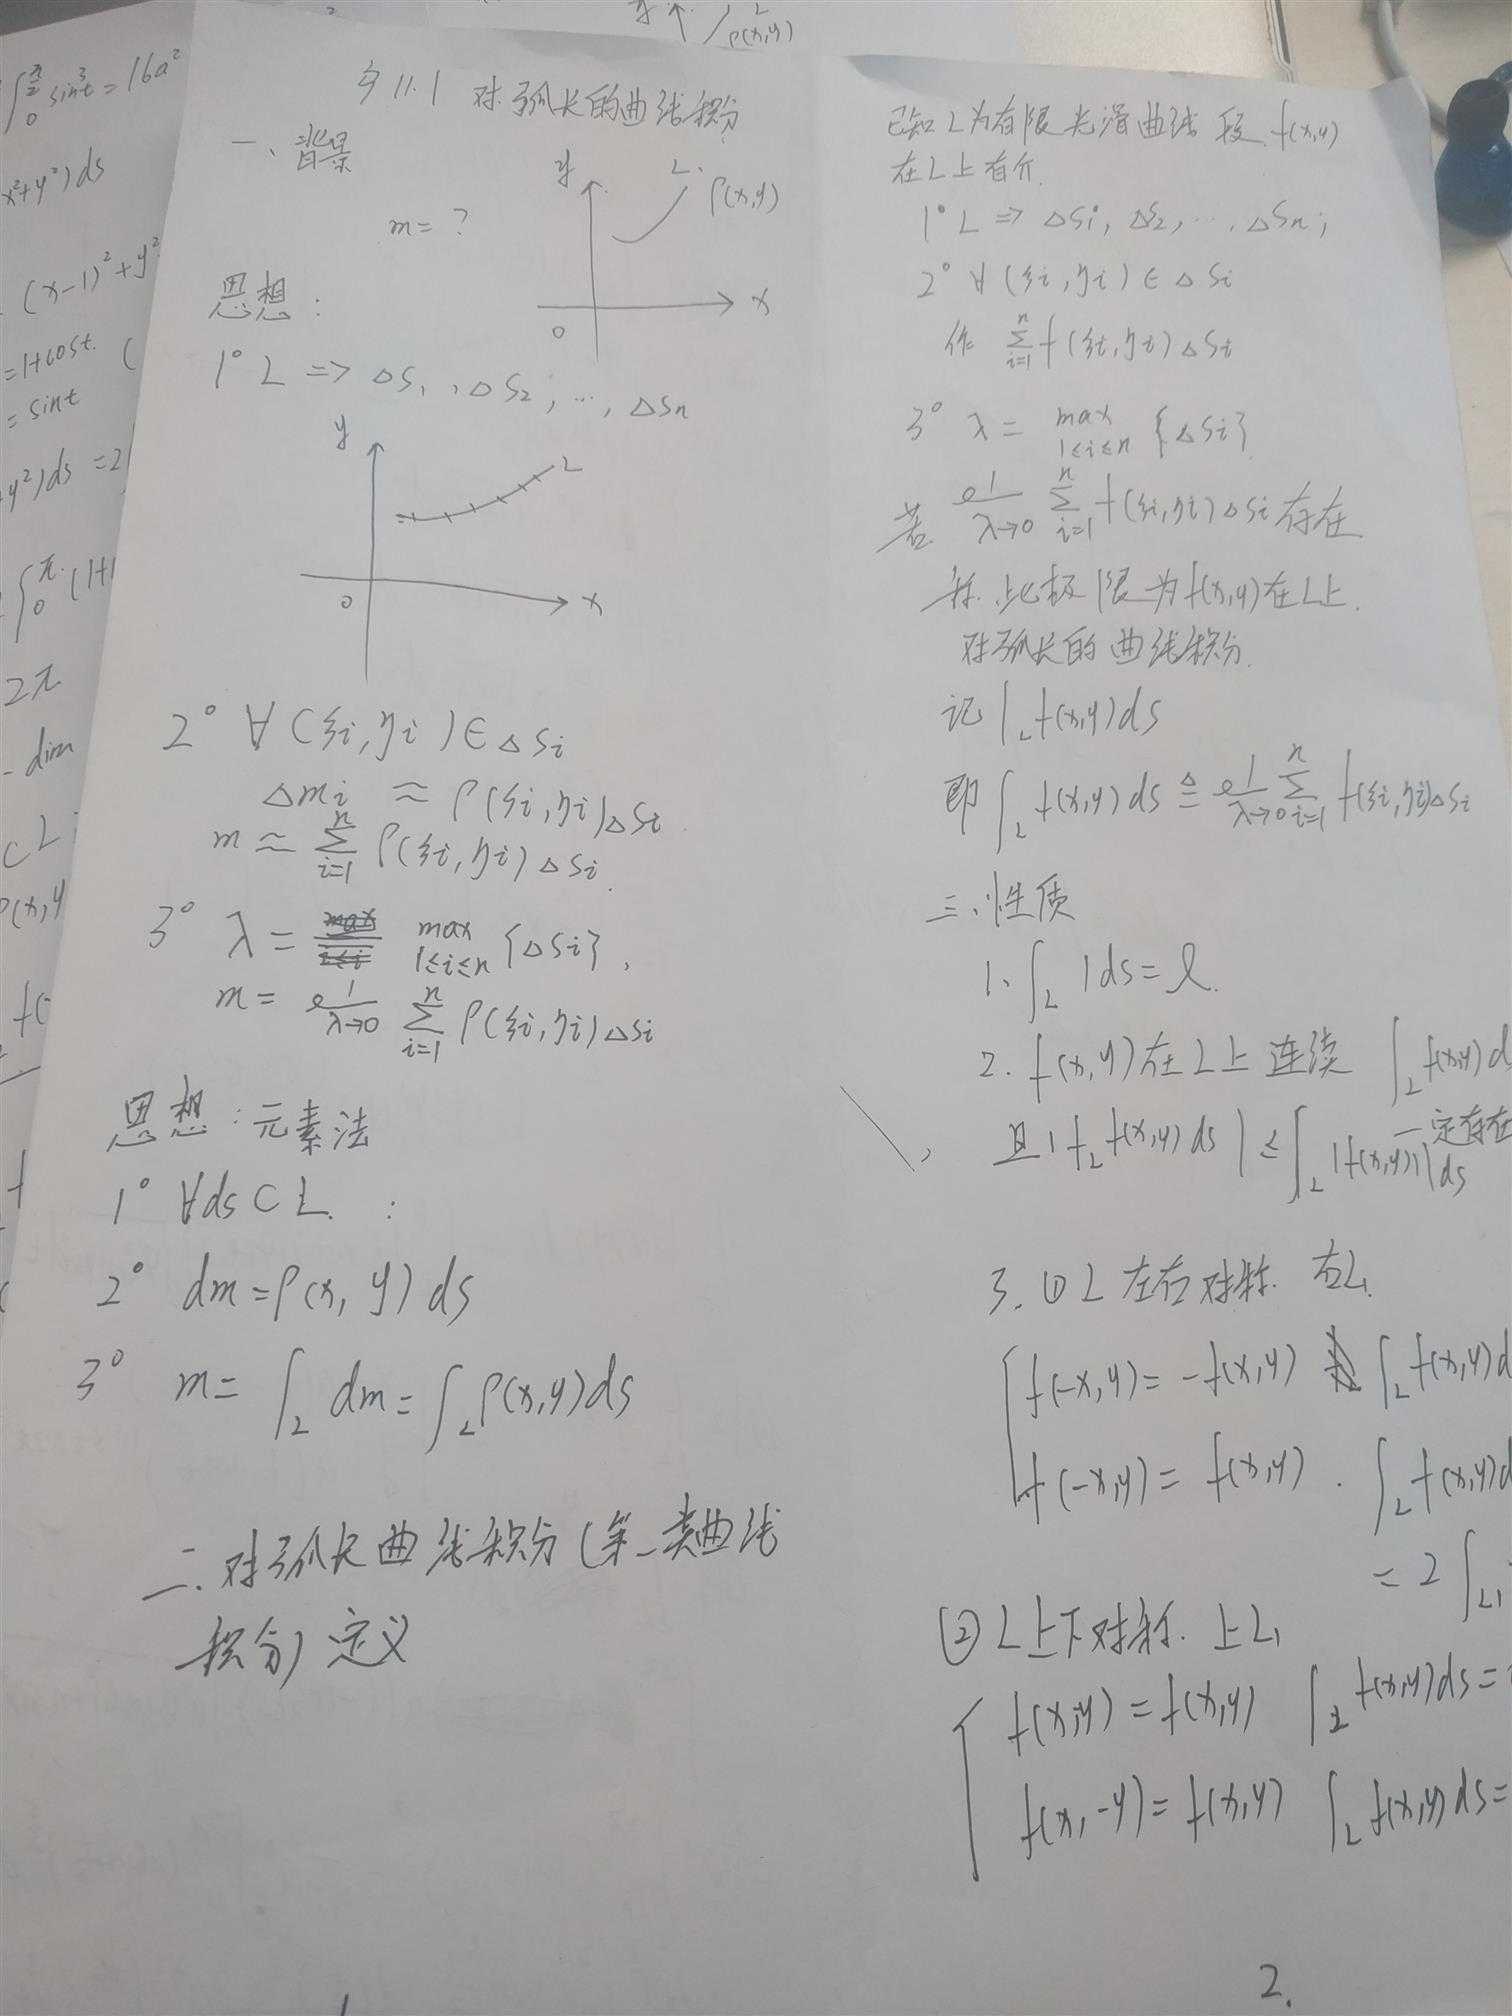 ρ(x,y)
∫₀^{π/2} sin³t = 16a²
x²+y²)ds
(x-1)²+y²
=1+cost. (
= sint
y²)ds =2
∫₀^π (1+
2π
- dim
⊂L
ρ(x,y
§11.1 对弧长的曲线积分
一、背景
y L ρ(x,y)
m=?
0 x
思想:
1° L => Δs₁, Δs₂, …, Δsn
y
L
0 x
2° ∀(ξi,ηi)∈Δsi
Δmi ≈ ρ(ξi,ηi)Δsi
m≈ Σ_{i=1}^{n} ρ(ξi,ηi)Δsi
3° λ= max_{1≤i≤n} {Δsi},
m= ℓ1_{λ→0} Σ_{i=1}^{n} ρ(ξi,ηi)Δsi
思想:元素法
1° ∀ds⊂L. :
2° dm=ρ(x,y)ds
3° m= ∫_L dm= ∫_L ρ(x,y)ds
二.对弧长曲线积分(第一类曲线
积分)定义
1
已知L为有限光滑曲线段,f(x,y)
在L上有介.
1° L => Δsi, Δs₂, …, Δsn;
2° ∀(ξi,ηi)∈Δsi
作 Σ_{i=1}^{n} f(ξi,ηi)Δsi
3° λ= max_{1≤i≤n} {Δsi}
若 ℓ1_{λ→0} Σ_{i=1}^{n} f(ξi,ηi)Δsi存在
称此极限为f(x,y)在L上.
对弧长的曲线积分.
记∫_L f(x,y)ds
即∫_L f(x,y)ds ≜ ℓ1_{λ→0} Σ_{i=1}^{n} f(ξi,ηi)Δsi
三、性质
1、∫_L 1ds=l.
2. f(x,y)在L上连续 ∫_L f(x,y)d
一定存在
且|∫_L f(x,y)ds|≤∫_L |f(x,y)|ds
3. ① L左右对称. 右L₁
f(-x,y)=-f(x,y) ∫_L f(x,y)d
f(-x,y)= f(x,y). ∫_L f(x,y)d
=2∫_{L₁}
② L上下对称. 上L₁
f(x,y)=f(x,y) ∫_L f(x,y)ds=
f(x,-y)=f(x,y) ∫_L f(x,y)ds=
2.